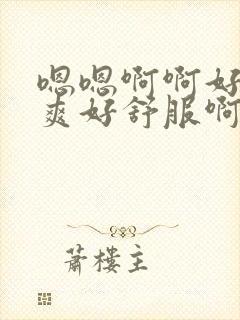 嗯嗯啊啊好
爽好舒服啊
蕭樓主